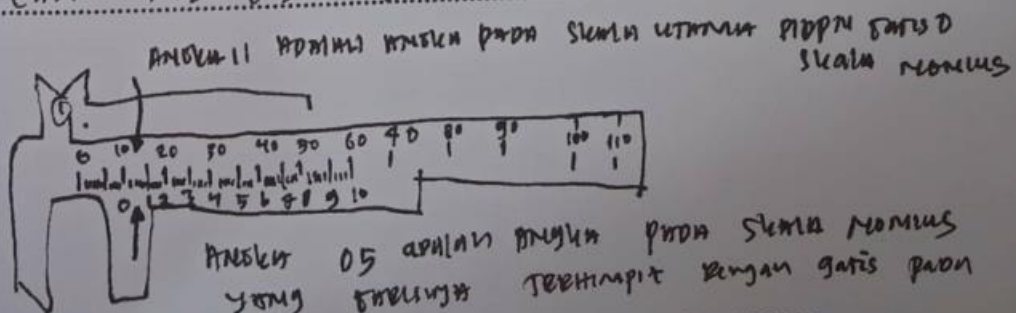 ANGKA 11 ADALAH ANGKA PADA SKALA UTAMA GARIS 0
SKALA NONIUS
0 10 20 30 40 50 60 70 80 90 100 110
0 1 2 3 4 5 6 7 8 9 10
ANGKA 05 adalah angka PADA SKALA NONIUS
YANG TERHIMPIT dengan garis pada